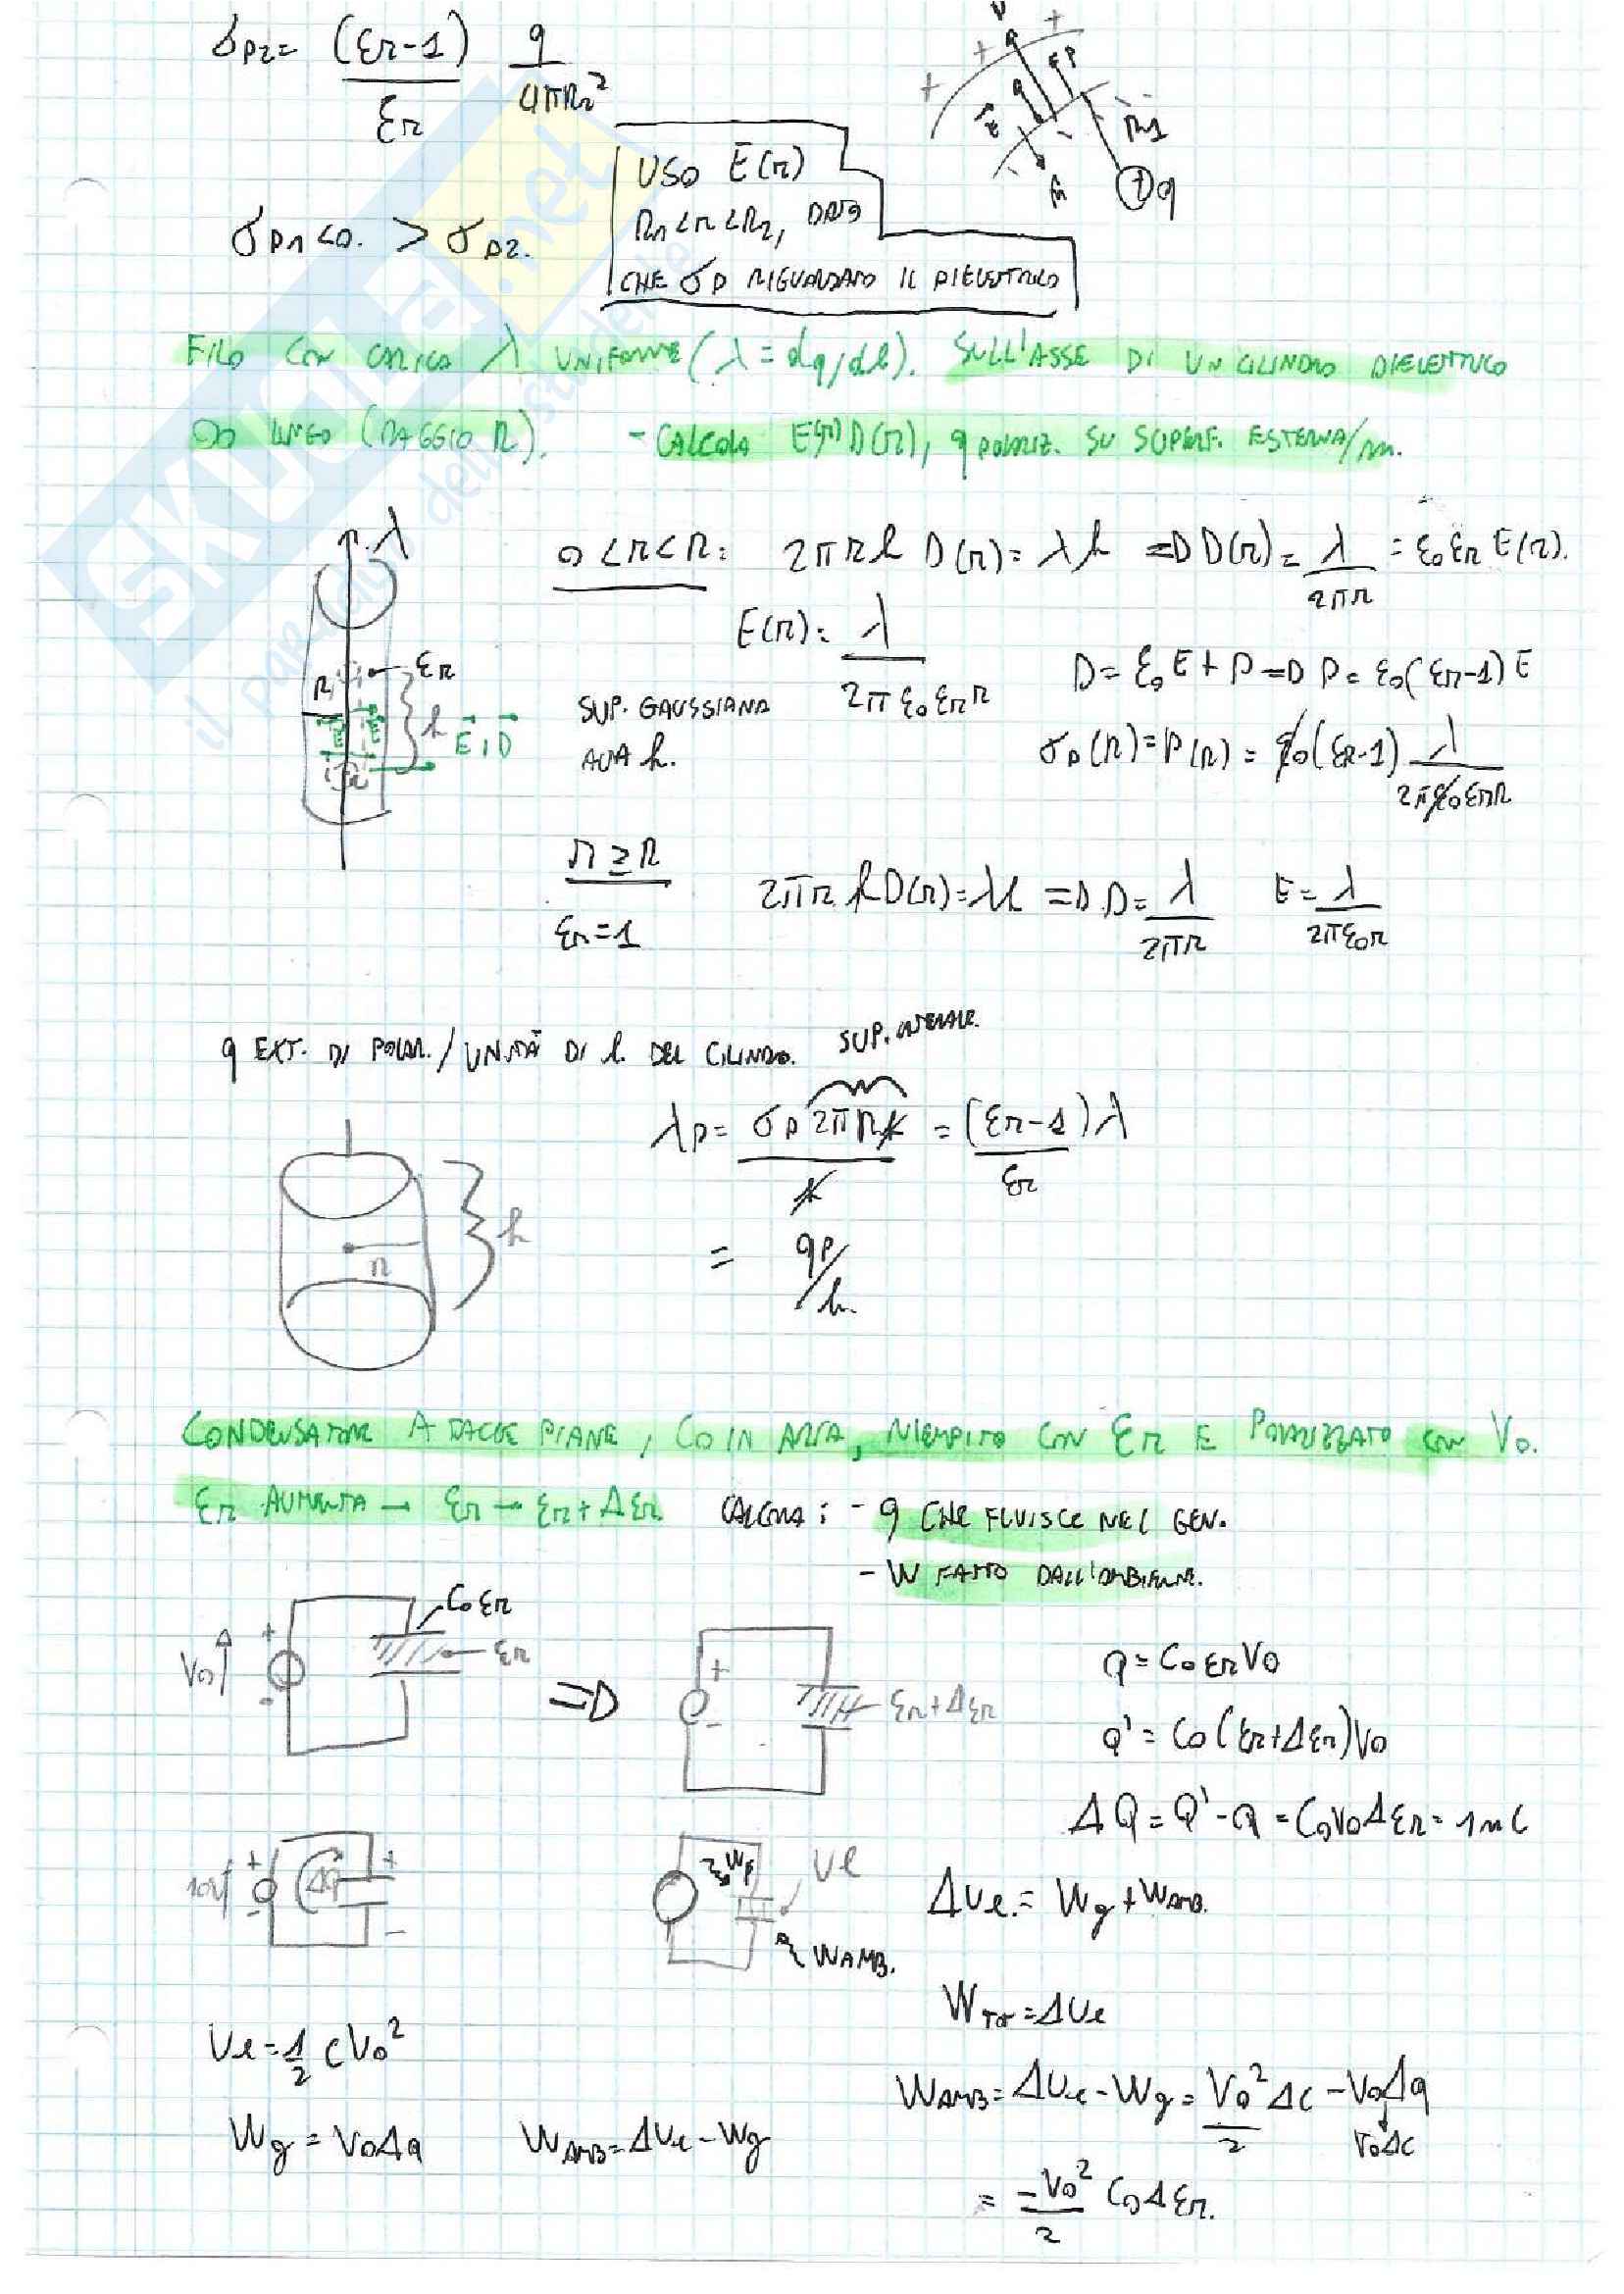 σp2 = (εr-1)/εr q/4πR2²
USO E(r)
R1<r<R2, DATO
CHE σp RIGUARDANO IL DIELETTRICO
R1
q
σp1<0. > σp2.
SKUOLA.net
FILO CON CARICA λ UNIFORME (λ = dq/dl). SULL'ASSE DI UN CILINDRO DIELETTRICO
∞ LUNGO (RAGGIO R). - CALCOLA E(r) D(r), q POLARIZ. SU SUPERF. ESTERNA/m.
λ
0<r<R: 2πrh D(r) = λh => D(r) = λ/2πr = ε0εr E(r).
E(r) = λ/2πε0εrr
εr
R
h
E, D
SUP. GAUSSIANA
ALTA h.
D = ε0E + P => P = ε0(εr-1)E
σp(R) = P(R) = ε0(εr-1) λ/2πε0εrR
r ≥ R
εr = 1
2πr h D(r) = λh => D = λ/2πr E = λ/2πε0r
q EXT. DI POLAR. / UNITÀ DI l. DEL CILINDRO. SUP. LATERALE.
λp = σp 2πRh/h = (εr-1)λ/εr
= qp/h.
h
R
CONDENSATORE A FACCE PIANE, C0 IN ARIA, RIEMPITO CON εr E POLARIZZATO CON V0.
εr AUMENTA → εr → εr+Δεr CALCOLA: - q CHE FLUISCE NEL GEN.
- W FATTO DALL'AMBIENTE.
C0εr
V0
εr
=>
εr+Δεr
Q = C0εrV0
Q' = C0(εr+Δεr)V0
ΔQ = Q'-Q = C0V0Δεr = 1nC
10V
Δq
Wg
Ue
WAMB.
ΔUe = Wg + WAMB.
WTOT = ΔUe
Ue = 1/2 CV0²
WAMB = ΔUe - Wg = V0²/2 ΔC - V0Δq
V0ΔC
Wg = V0Δq WAMB = ΔUe - Wg
= -V0²/2 C0Δεr.